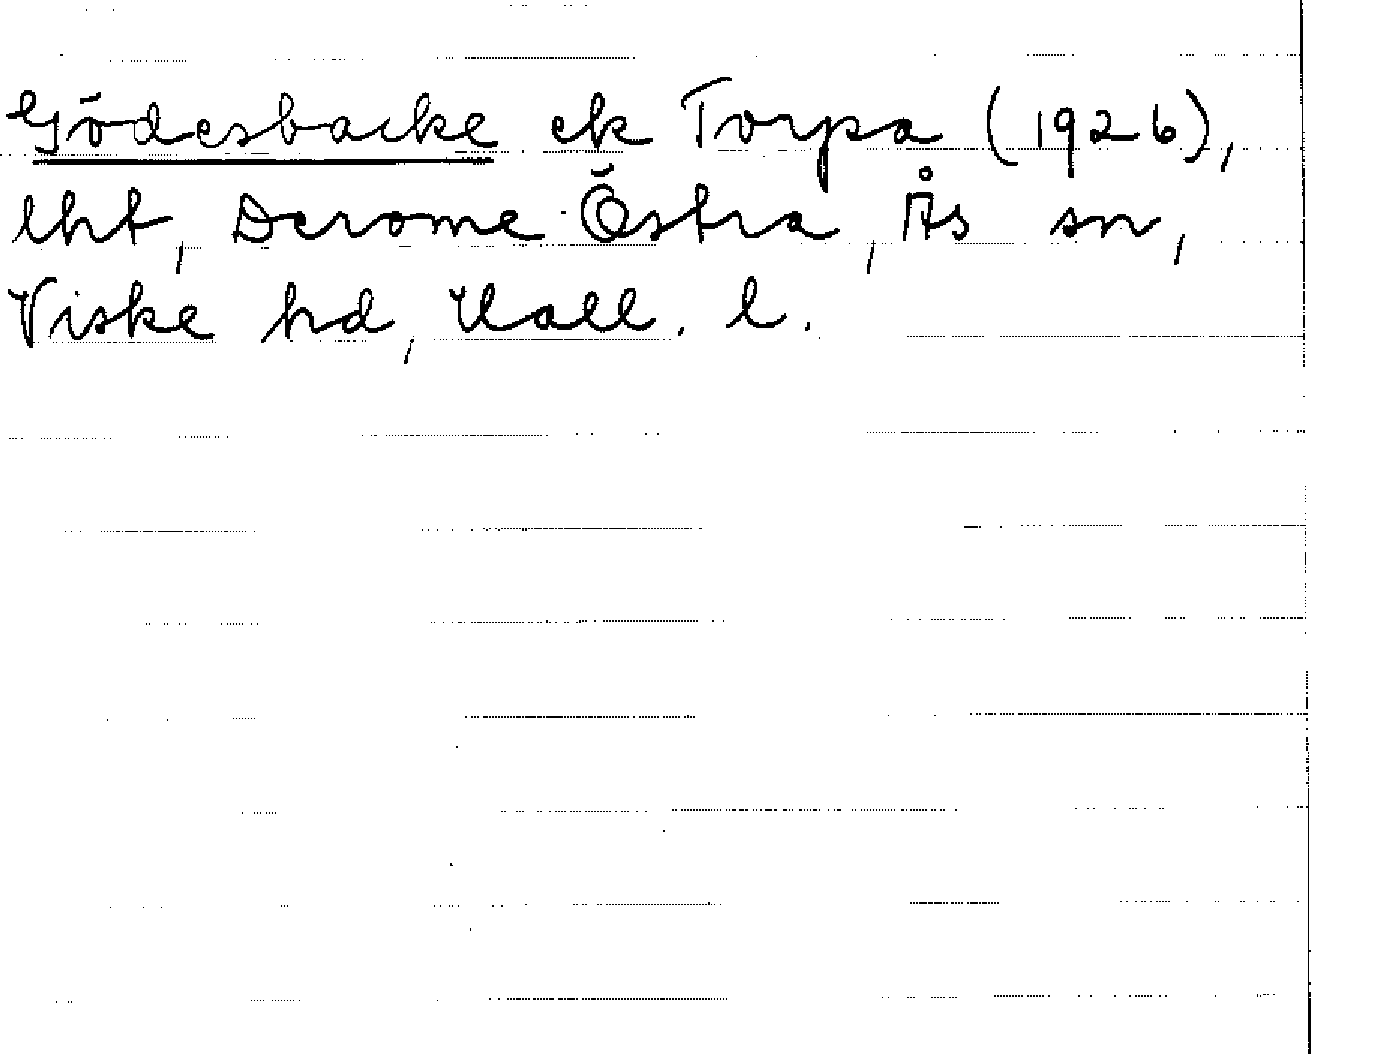 Gödesbacke ek Torpa (1926),
lht, Derome Östra, Ås sn,
Viske hd, Hall. l.